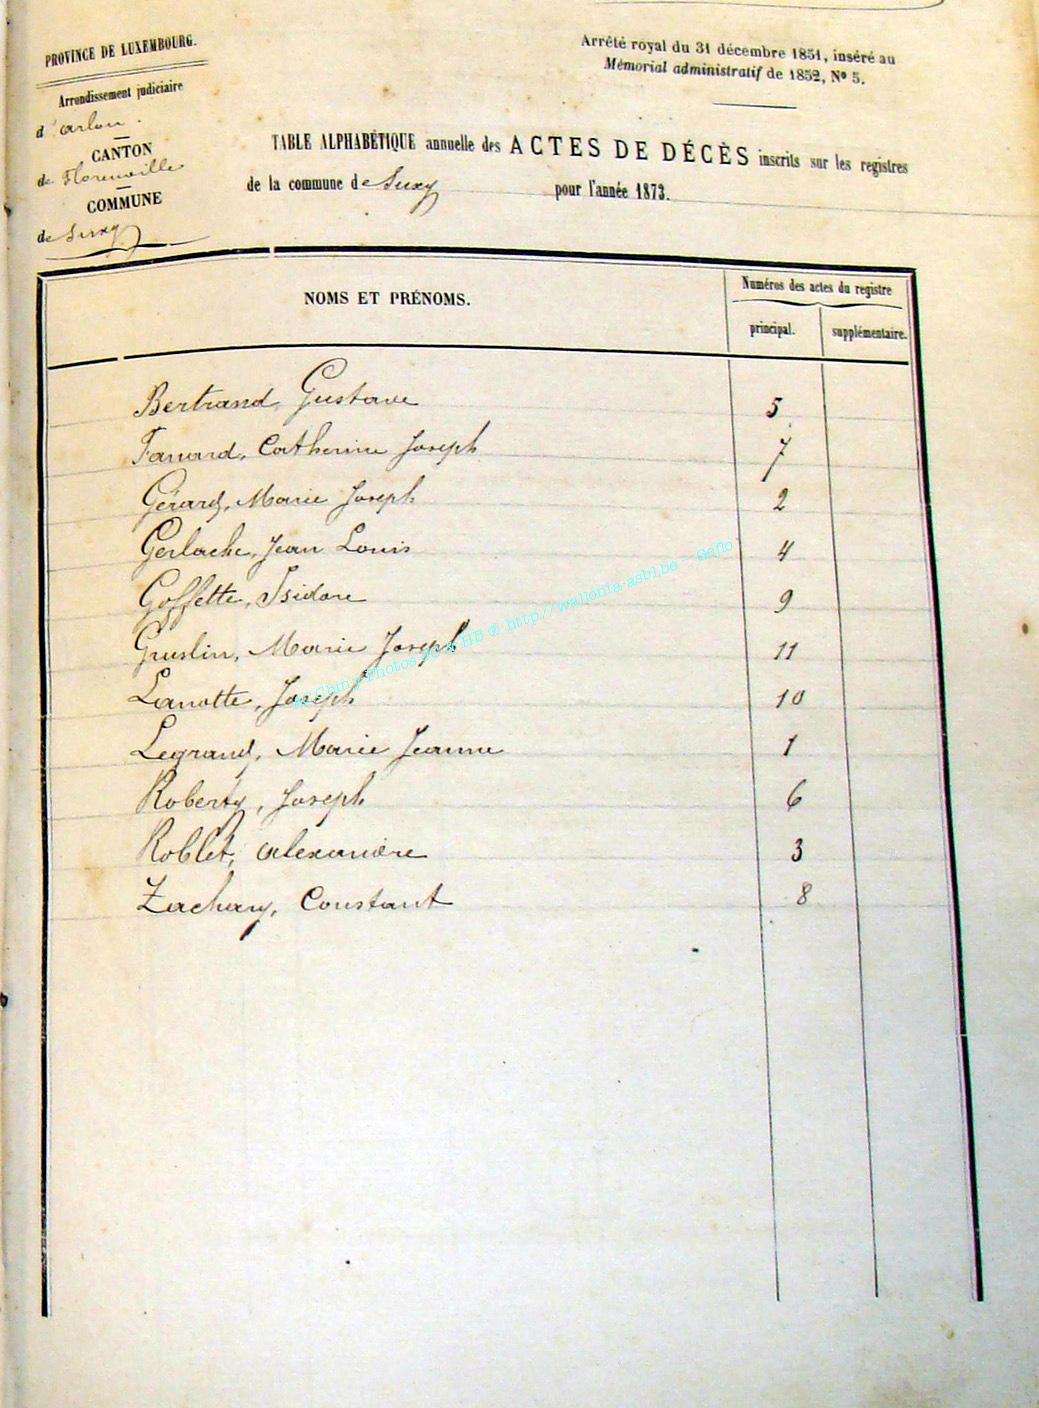 PROVINCE DE LUXEMBOURG.
Arrondissement judiciaire
d'arlon.
CANTON
de Florenville
COMMUNE
de Suxy
Arrêté royal du 31 décembre 1851, inséré au
Mémorial administratif de 1852, No 5.
TABLE ALPHABÉTIQUE annuelle des ACTES DE DÉCÈS inscrits sur les registres
de la commune de Suxy pour l'année 1873.
NOMS ET PRÉNOMS.
Numéros des actes du registre
principal. supplémentaire.
Bertrand, Gustave 5
Catherine Joseph 7
Gérard, Marie Joseph 2
Gerlache, Jean Louis 4
Goffette, Isidore 9
Marie Joseph 11
Lanotte, Joseph 10
Legrand, Marie Jeanne 1
Roberty, Joseph 6
Roblet, alexandre 3
Zachary, Constant 8
Photos HB @ http//wallonia-asbl,be - Geflo